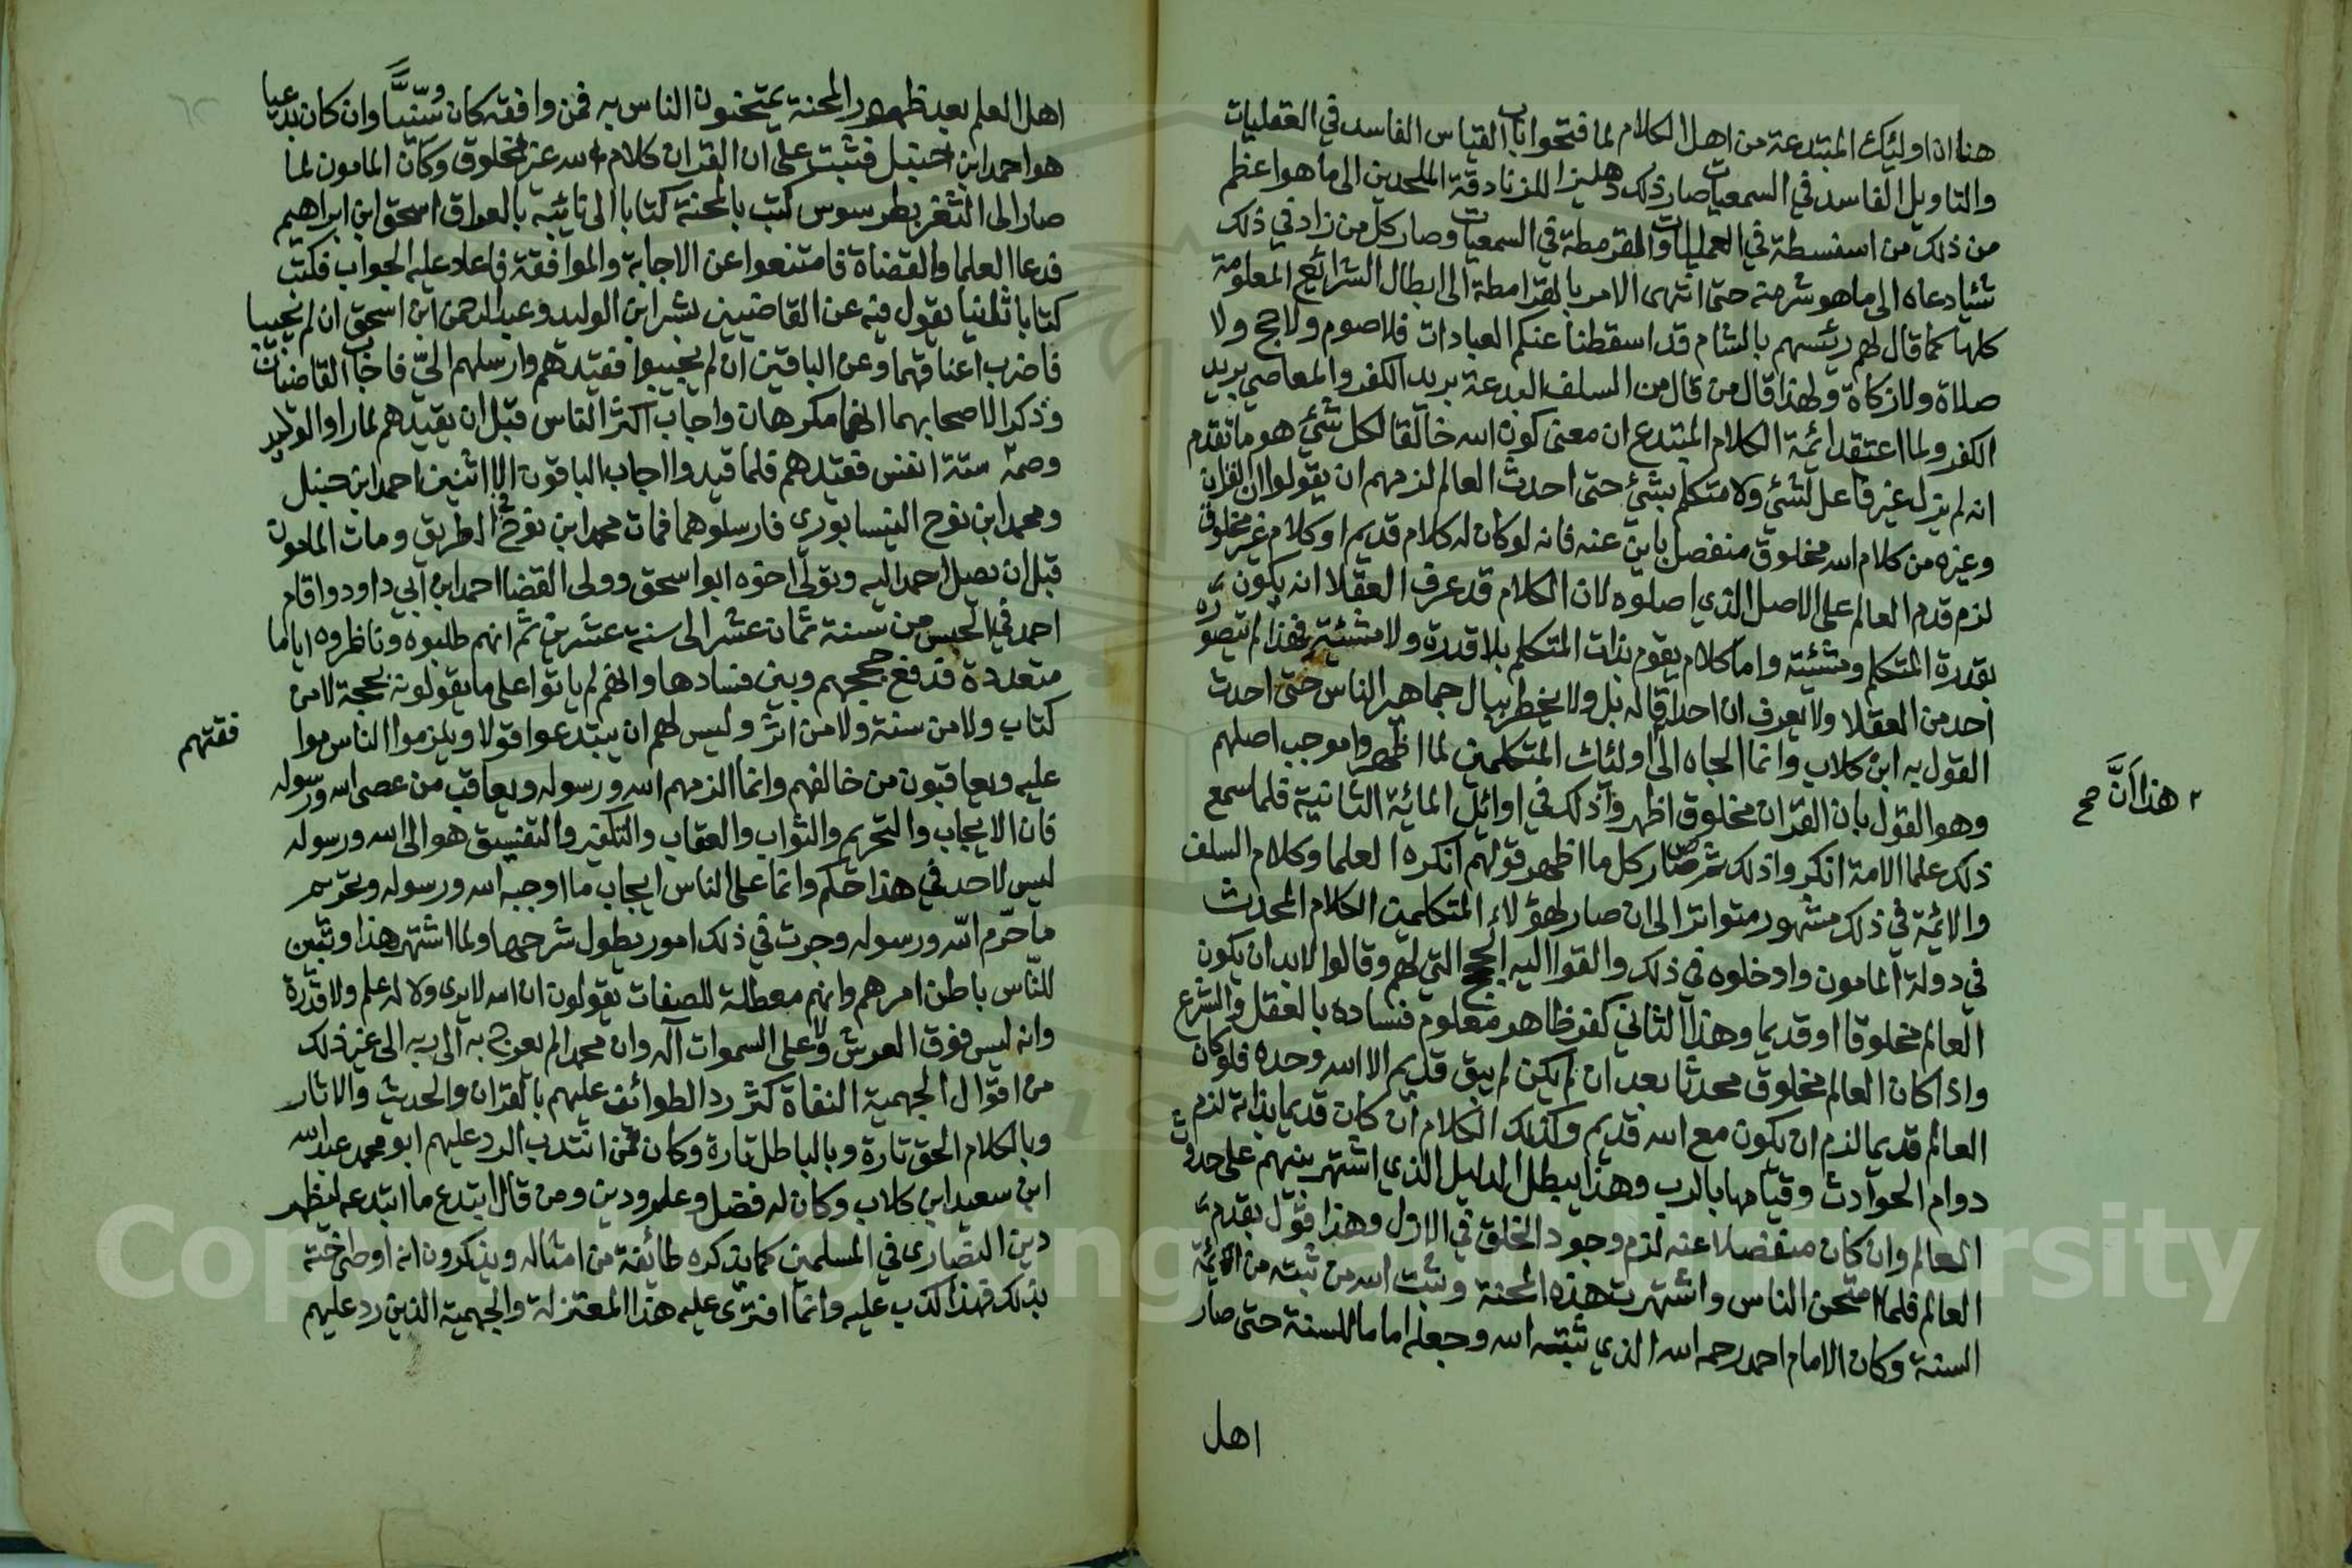 هنا ان اوليك المبتدعة من اهل الكلام لما فتحوا باب القياس الفاسد في العقليات
والتاويل الفاسد في السمعيات صار ذلك دهليزا للزنادقة الملحدين الى ما هو اعظم
من ذلك من السفسطة في العقليات والقرمطة في السمعيات وصار كل من زاد في ذلك
شيا دعاه الى ما هو شر منه حتى انتهى الامر بالقرامطة الى ابطال الشرائع المعلومة
كلها كما قال لهم رئيسهم بالشام قد اسقطنا عنكم العبادات فلا صوم ولا حج ولا
صلاة ولا زكاة ولهذا قال من قال من السلف البدعة بريد الكفر والمعاصي بريد
الكفر ولما اعتقد ائمة الكلام المبتدع ان معنى كون الله خالقا لكل شئ هو ما تقدم
انه لم يزل غير فاعل لشئ ولا متكلم بشئ حتى احدث العالم لزمهم ان يقولوا ان القران
وغيره من كلام الله مخلوق منفصل باين عنه فانه لو كان له كلام قديم او كلام غير مخلوق
لزم قدم العالم على الاصل الذي اصلوه لان الكلام قد عرف العقلا انه يكون
بقدرة المتكلم ومشئته واما كلام يقوم بذات المتكلم بلا قدرة ولا مشئة فهذا لم يتصوره
احد من العقلا ولا يعرف ان احدا قاله بل ولا يخطر ببال جماهير الناس حتى احدث
القول به ابن كلاب وانما الجاه الى اوليك المتكلمين لما اظهروا موجب اصلهم
وهو القول بان القران مخلوق اظهروا ذلك في اوائل المائة الثانية فلما سمع
ذلك علما الامة انكروا ذلك ثم صار كل ما اظهر قولهم انكره العلما وكلام السلف
والائمة في ذلك مشهور متواترا الى ان صار لهؤلاء المتكلمين الكلام المحدث
في دولة المامون وادخلوه في ذلك والقوا اليه الحجج التي لهم وقالوا لا بد ان يكون
العالم مخلوقا او قديما وهذا الثاني كفر ظاهر معلوم فساده بالعقل والشرع
واذا كان العالم مخلوق محدثا بعد ان لم يكن لم يبق قديم الا الله وحده فلو كان
العالم قديما لزم ان يكون مع الله قديم وكذلك الكلام ان كان قديما بذاته لزم
دوام الحوادث وقيامها بالرب وهذا يبطل الدليل الذي اشتهر بينهم على حدوث
العالم وان كان منفصلا عنه لزم وجود الخلق في الازل وهذا قول بقدم
العالم فلما امتحن الناس واشتهرت هذه المحنة وثبت الله من ثبته من ائمة
السنة وكان الامام احمد رحمه الله الذي ثبته الله وجعله اماما للسنة حتى صار
اهل
هذا ان صح
اهل العلم بعد ظهور المحنة يمتحنون الناس به فمن وافقه كان سنيا وان كان بدعيا
هو احمد ابن حنبل فثبت على ان القران كلام الله غير مخلوق وكان المامون لما
صار الى الثغر بطرسوس كتب بالمحنة كتابا الى نائبه بالعراق اسحق ابن ابراهيم
فدعا العلما والقضاة فامتنعوا عن الاجابة والموافقة فاعاد عليه الجواب فكتب
كتابا ثانيا يقول فيه عن القاضيين بشر ابن الوليد وعبد الرحمن ابن اسحق ان لم يجيبا
فاضرب اعناقهما وعن الباقين ان لم يجيبوا فقيدهم وارسلهم الي فاجاب القاضيان
وذكرا لاصحابهما انهما مكرهان واجاب اكثر الناس قبل ان يقيدهم لما راوا الوعيد
وصمة ستة انفس فقيدهم فلما قيدوا اجاب الباقون الا اثنين احمد ابن حنبل
ومحمد ابن نوح النيسابوري فارسلوهما فمات محمد ابن نوح في الطريق ومات المامون
قبل ان يصل احمد اليه وتولى اخوه ابو اسحق وولى القضا احمد ابن ابي داود واقام
احمد في الحبس من سنة ثمان عشر الى سنة عشرين ثم انهم طلبوه وناظروه اياما
متعددة فدفع حججهم وبين فسادها وانهم لم ياتوا على ما يقولونه بحجة لا من
كتاب ولا من سنة ولا من اثر وليس لهم ان يبتدعوا قولا ويلزموا الناس موا
فقتهم
عليه ويعاقبون من خالفهم وانما الزمهم الله ورسوله ويعاقب من عصى الله ورسوله
فان الايجاب والتحريم والثواب والعقاب والتكفير والتفسيق هو الى الله ورسوله
ليس لاحد في هذا حكم وانما على الناس ايجاب ما اوجبه الله ورسوله وتحريم
ما حرم الله ورسوله وجرت في ذلك امور يطول شرحها ولما اشتهر هذا وتبين
للناس باطن امرهم وانهم معطلة للصفات يقولون ان الله لا يرى ولا له علم ولا قدرة
وانه ليس فوق العرش ولا على السموات اله وان محمدا لم يعرج به الى ربه الى غير ذلك
من اقوال الجهمية النفاة كثر رد الطوائف عليهم بالقران والحديث والاثار
وبالكلام الحق تارة وبالباطل تارة وكان ممن انتدب الرد عليهم ابو محمد عبد الله
ابن سعيد ابن كلاب وكان له فضل وعلم ودين ومن قال ابتدع ما ابتدعه ليظهر
دين النصارى في المسلمين كما يذكره طائفة من امثاله ويذكرون انه اوصى اخته
بذلك فهذا كذب عليه وانما افترى عليه هذا المعتزلة والجهمية الذين رد عليهم
Copyright © King Saud University